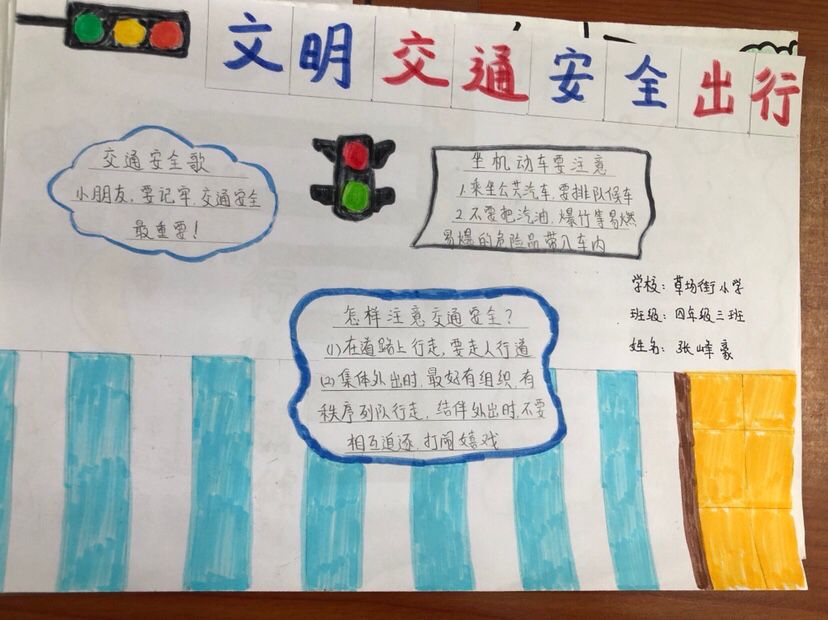 文明交通安全出行
交通安全歌
小朋友，要记牢，交通安全
最重要！
坐机动车要注意
1.乘坐公共汽车，要排队候车
2.不要把汽油，爆竹等易燃
易爆的危险品带入车内
学校：草场街小学
班级：四年级三班
姓名：张峰豪
怎样注意交通安全？
(1)在道路上行走，要走人行道
(2)集体外出时，最好有组织，有
秩序列队行走，结伴外出时，不要
相互追逐，打闹嬉戏